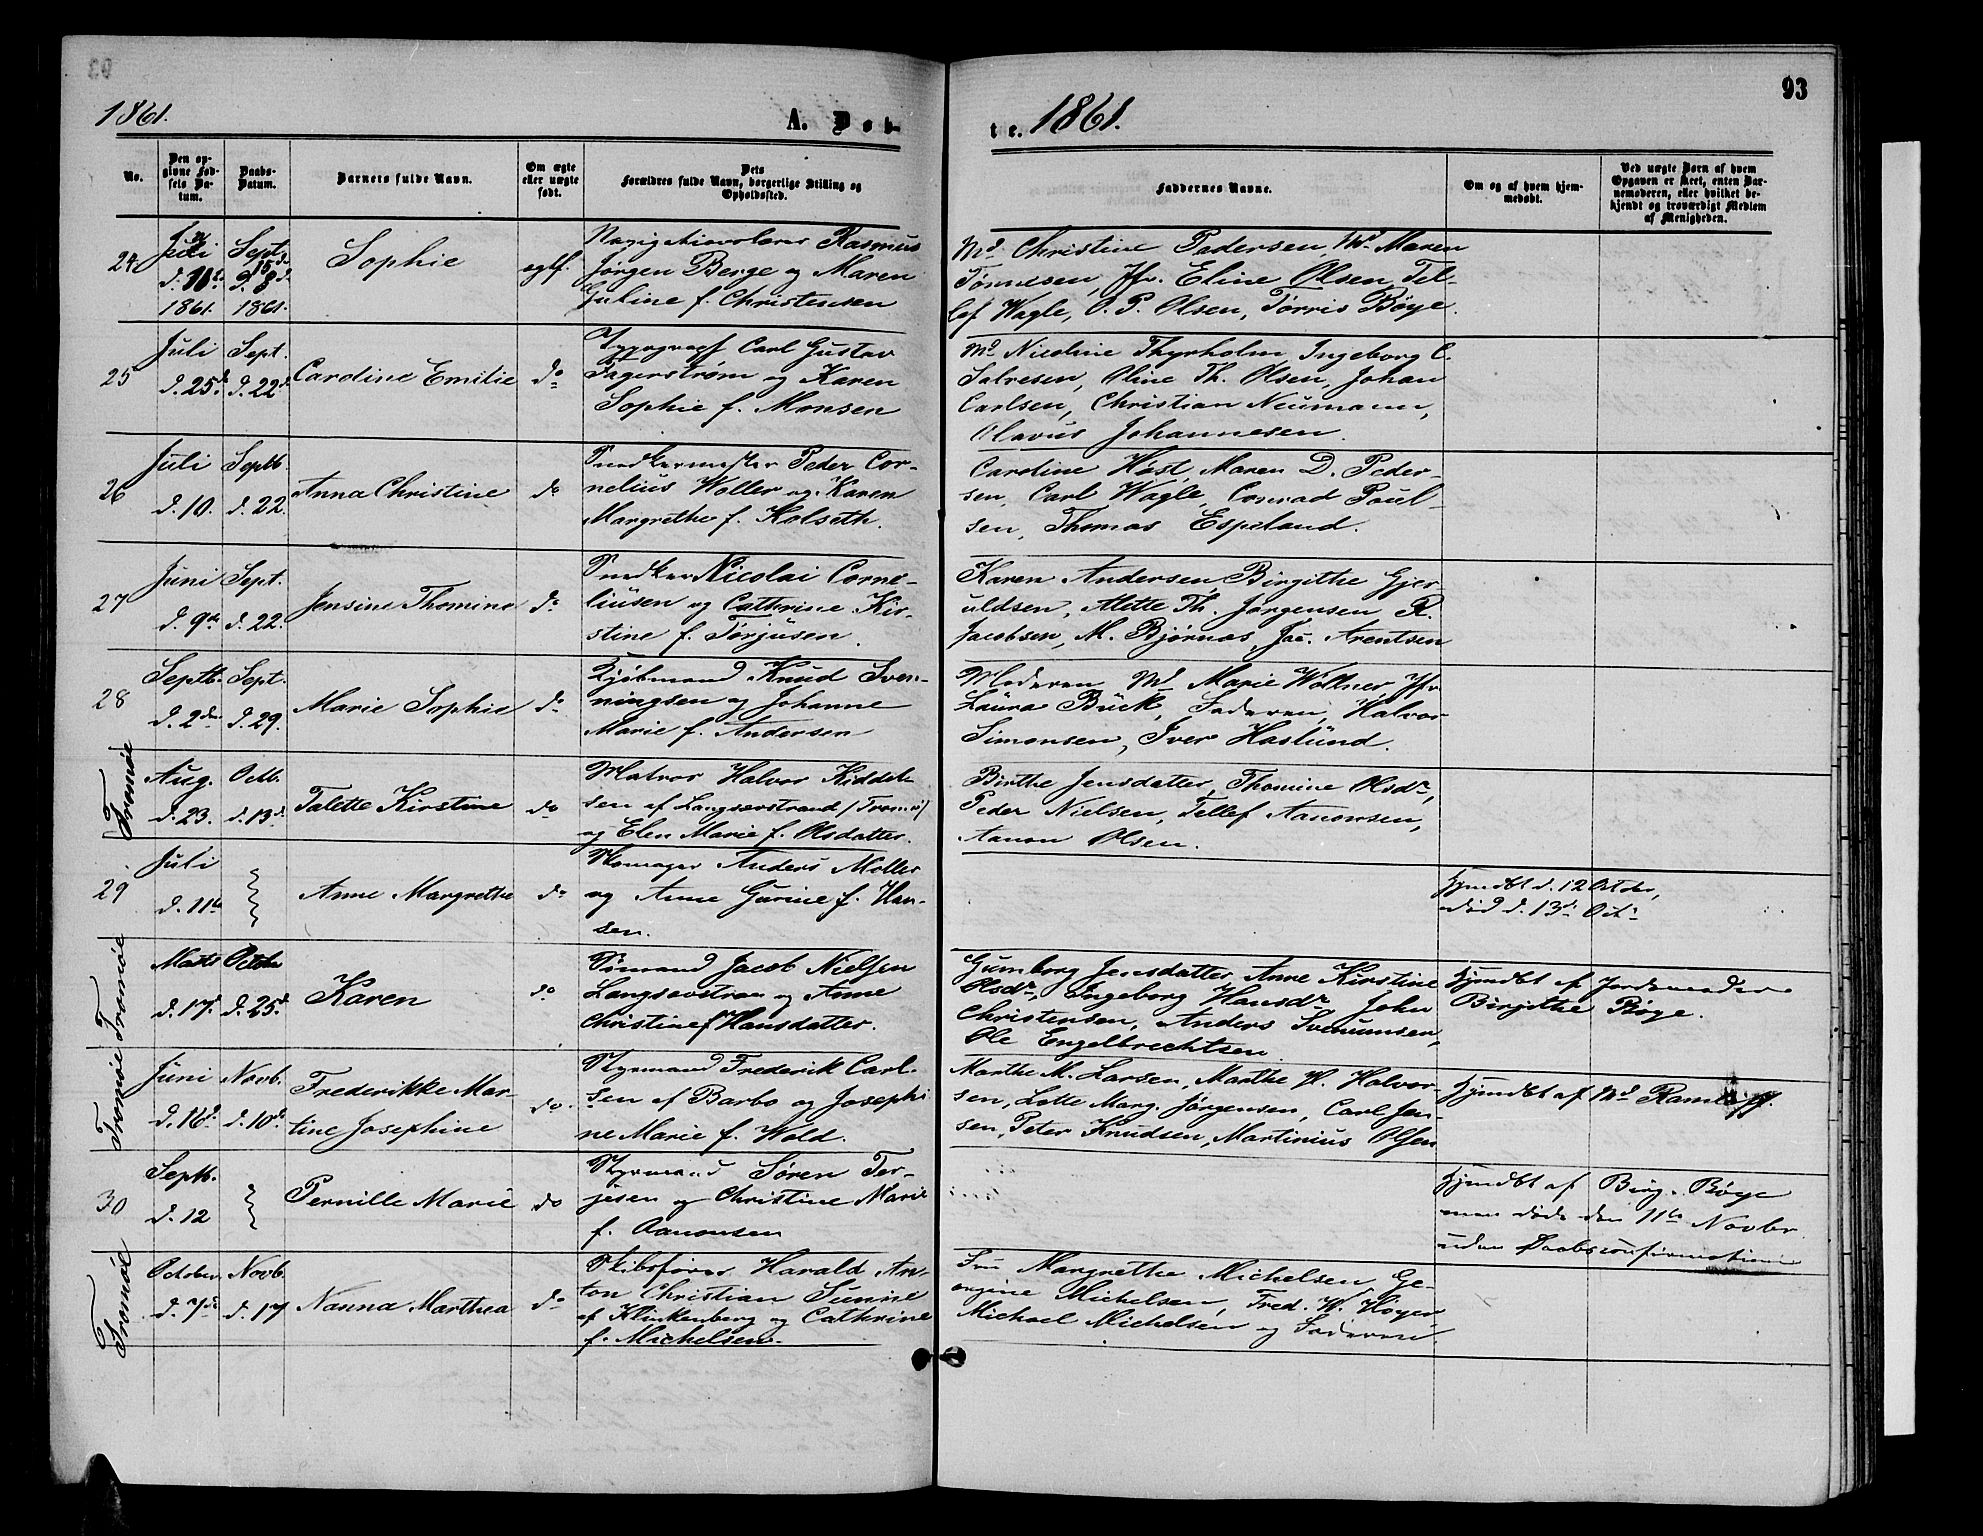 93
1861.
A. Døb-
te. 1861.
No.
Den op-
givne Fød-
sels Da-
tum.
Daabs-
Datum.
Barnets fulde Navn.
Om ægte
eller uægte
født.
Dets
Forældres fulde Navn, borgerlige Stilling og
Opholdssted.
Faddernes Navne.
Om og af hvem hjem-
medøbt.
Ved uægte Børn af hvem
Opgaven er skeet, enten Bar-
nemoderen, eller hvilket be-
kjendt og troværdigt Medlem
af Menigheden.
24
Juli
1861.
Sept.
1861.
Sophie
Rasmus
Jørgen Berge og Maren
Guline f. Christensen
Md. Christine Pedersen, Md. Maren
Tønnesen, Jfr. Eline Olsen, Tel-
lef Wagle, O. P. Olsen, Tørris Bøye.
25
Juli
d. 25d.
Sept.
d. 22d.
Cardine Emilie
do
Typograf Carl Gustav
Fagerstrøm og Karen
Sophie f. Monsen
Md. Nicoline Thyrholm, Ingeborg C.
Salvesen, Oline Th. Olsen, Johan
Carlsen, Christian Neumann,
Olavus Johannesen.
26
Juli
d. 10.
Septb.
d. 22.
Anna Christine
do
Snedkermester Peder Cor-
nelius Woller og Karen
Margrethe f. Holseth.
Caroline Høst, Maren D. Peder-
sen, Carl Wagle, Conrad Poul-
sen, Thomas Espeland.
27
Juni
d. 9de
Sept.
d. 22.
Jensine Thomine
do
Snedker Nicolai Corne-
liusen og Cathrine Kir-
stine f. Torjusen.
Karen Andersen, Birgithe Gjer-
uldsen, Alette Th. Jørgensen, R.
Jacobsen, M. Bjørnaas, Jac. Arentsen
28
Septb.
d. 2den
Sept.
d. 29.
Marie Sophie
do
Kjøbmand Knud Sven-
ningsen og Johanne
Marie f. Andersen
Moderen, Md. Marie Wollner, Jfr.
Laura Bück, Faderen, Halvor
Simonsen, Iver Haslund.
Tromøe
Aug.
d. 23.
Octb.
d. 13d.
Talette Kirstine
do
Matros Halvor Kiddel-
sen af Langsævstrand (Tromø)
og Elen Marie f. Olsdatter.
Birthe Jensdatter, Thomine Olsdr,
Peder Nielsen, Tellef Aanonsen,
Aanon Olsen.
29
Juli
d. 11te
Anne Margrethe
do
Anders Møller
og Anne Gurine f. Han-
sen.
Hjemdbt d. 12 October,
død d. 13de Octr
Tromøe
Marts
d. 17d.
Octbr
d. 25d.
Karen
do
Sømand Jacob Nielsen
Langsævstran og Anne
Christine f. Hansdatter.
Gumborg Jensdatter, Anne Kirstine
Olsdr, Ingeborg Hansdr, John
Christensen, Anders Svenumsen,
Ole Engelbrechtsen.
Hjemdbt af Jordemoder
Birgithe Bøye.
Tromøe
Juni
d. 16d.
Novb.
d. 10de
Frederikke Mar-
tine Josephine
do.
Styrmand Frederik Carl-
sen af Barbo og Josephi
ne Marie f. Wold.
Marthe M. Larsen, Marthe H. Halvor-
sen, Lotte Marg. Jørgensen, Carl Jen-
sen, Peter Knudsen, Martinius Olsen
Hjemdbt af Md.
30
Septb.
d. 12
Pernille Marie
do
Styrmand Søren Ter-
jesen og Christine Marie
f. Aanonsen
Hjemdbt af Birg. Bøye
men døde den 11te Novbr.
uden Daabsconfirmation
Tromøe
October
d. 7de
Novb.
d. 17
Nanna Marthea
do
Skibsfører Harald An-
ton Christian Sunne
af Klinkenberg og Cathrine
f. Michelsen.
Fru Margrethe Michelsen, Ge-
orgine Michelsen, Fred. W. Høyer,
Michael Michelsen og Faderen